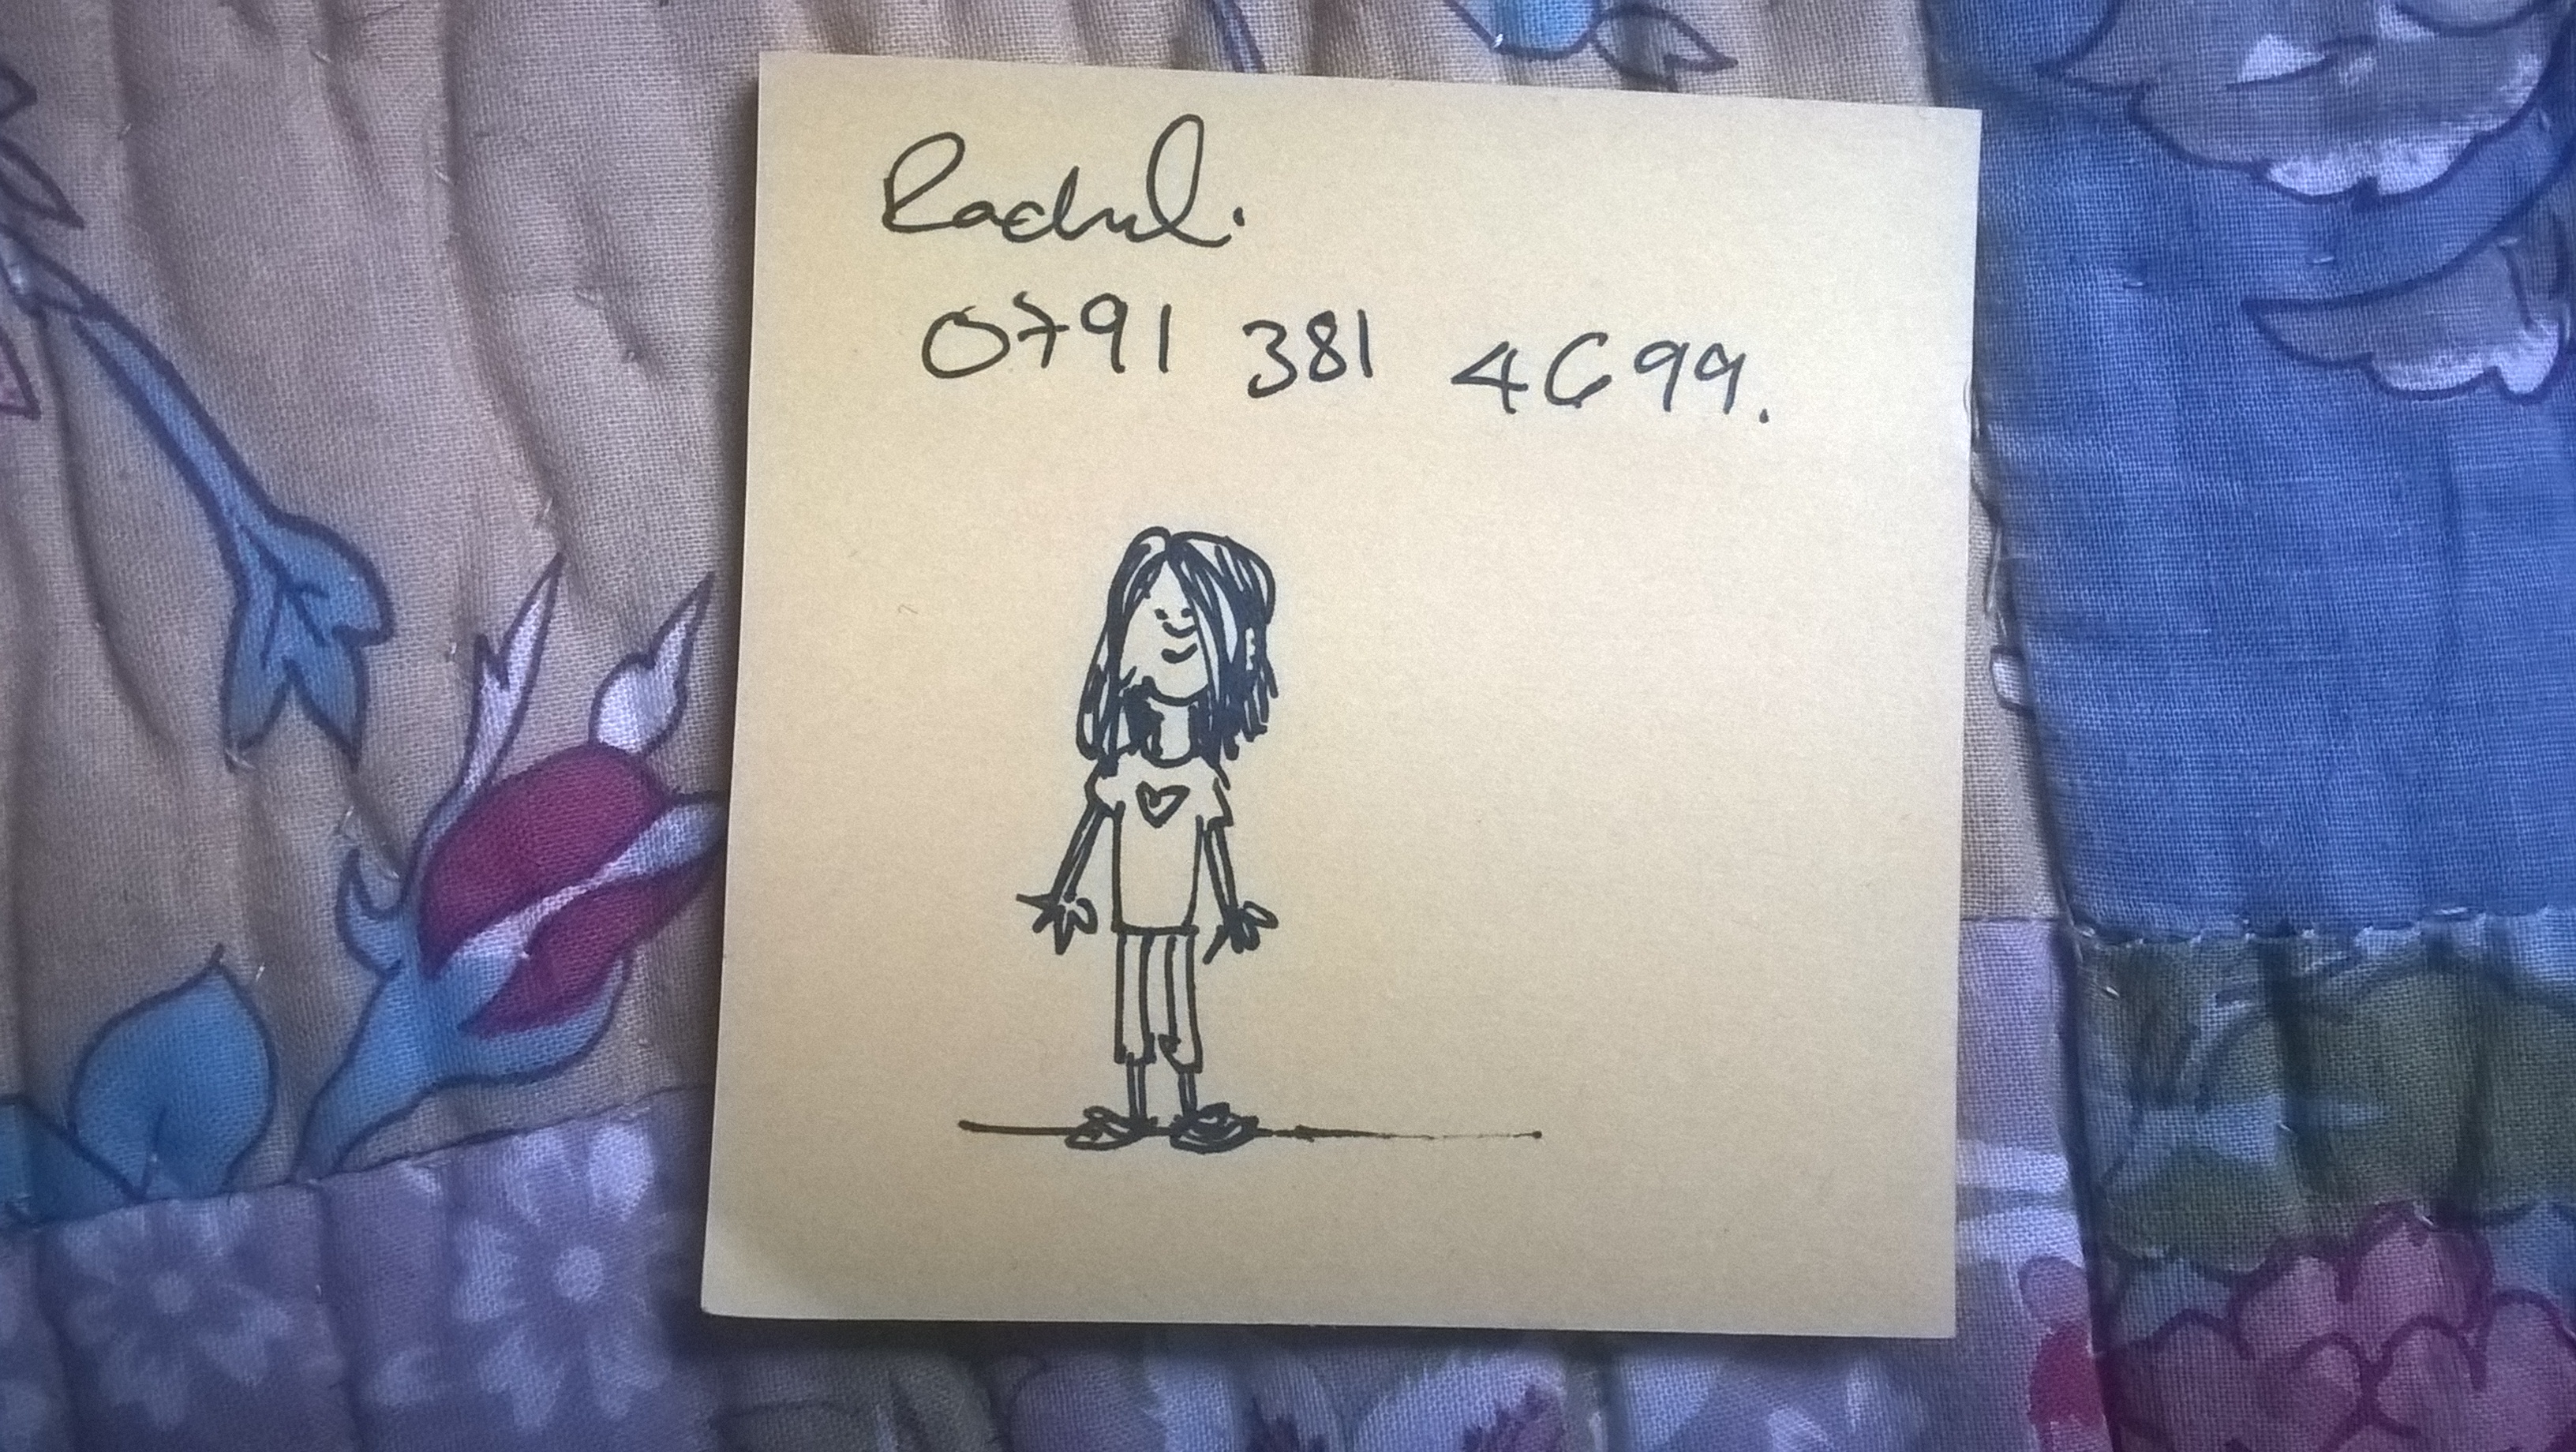 Rachel.
0791 381 4699.